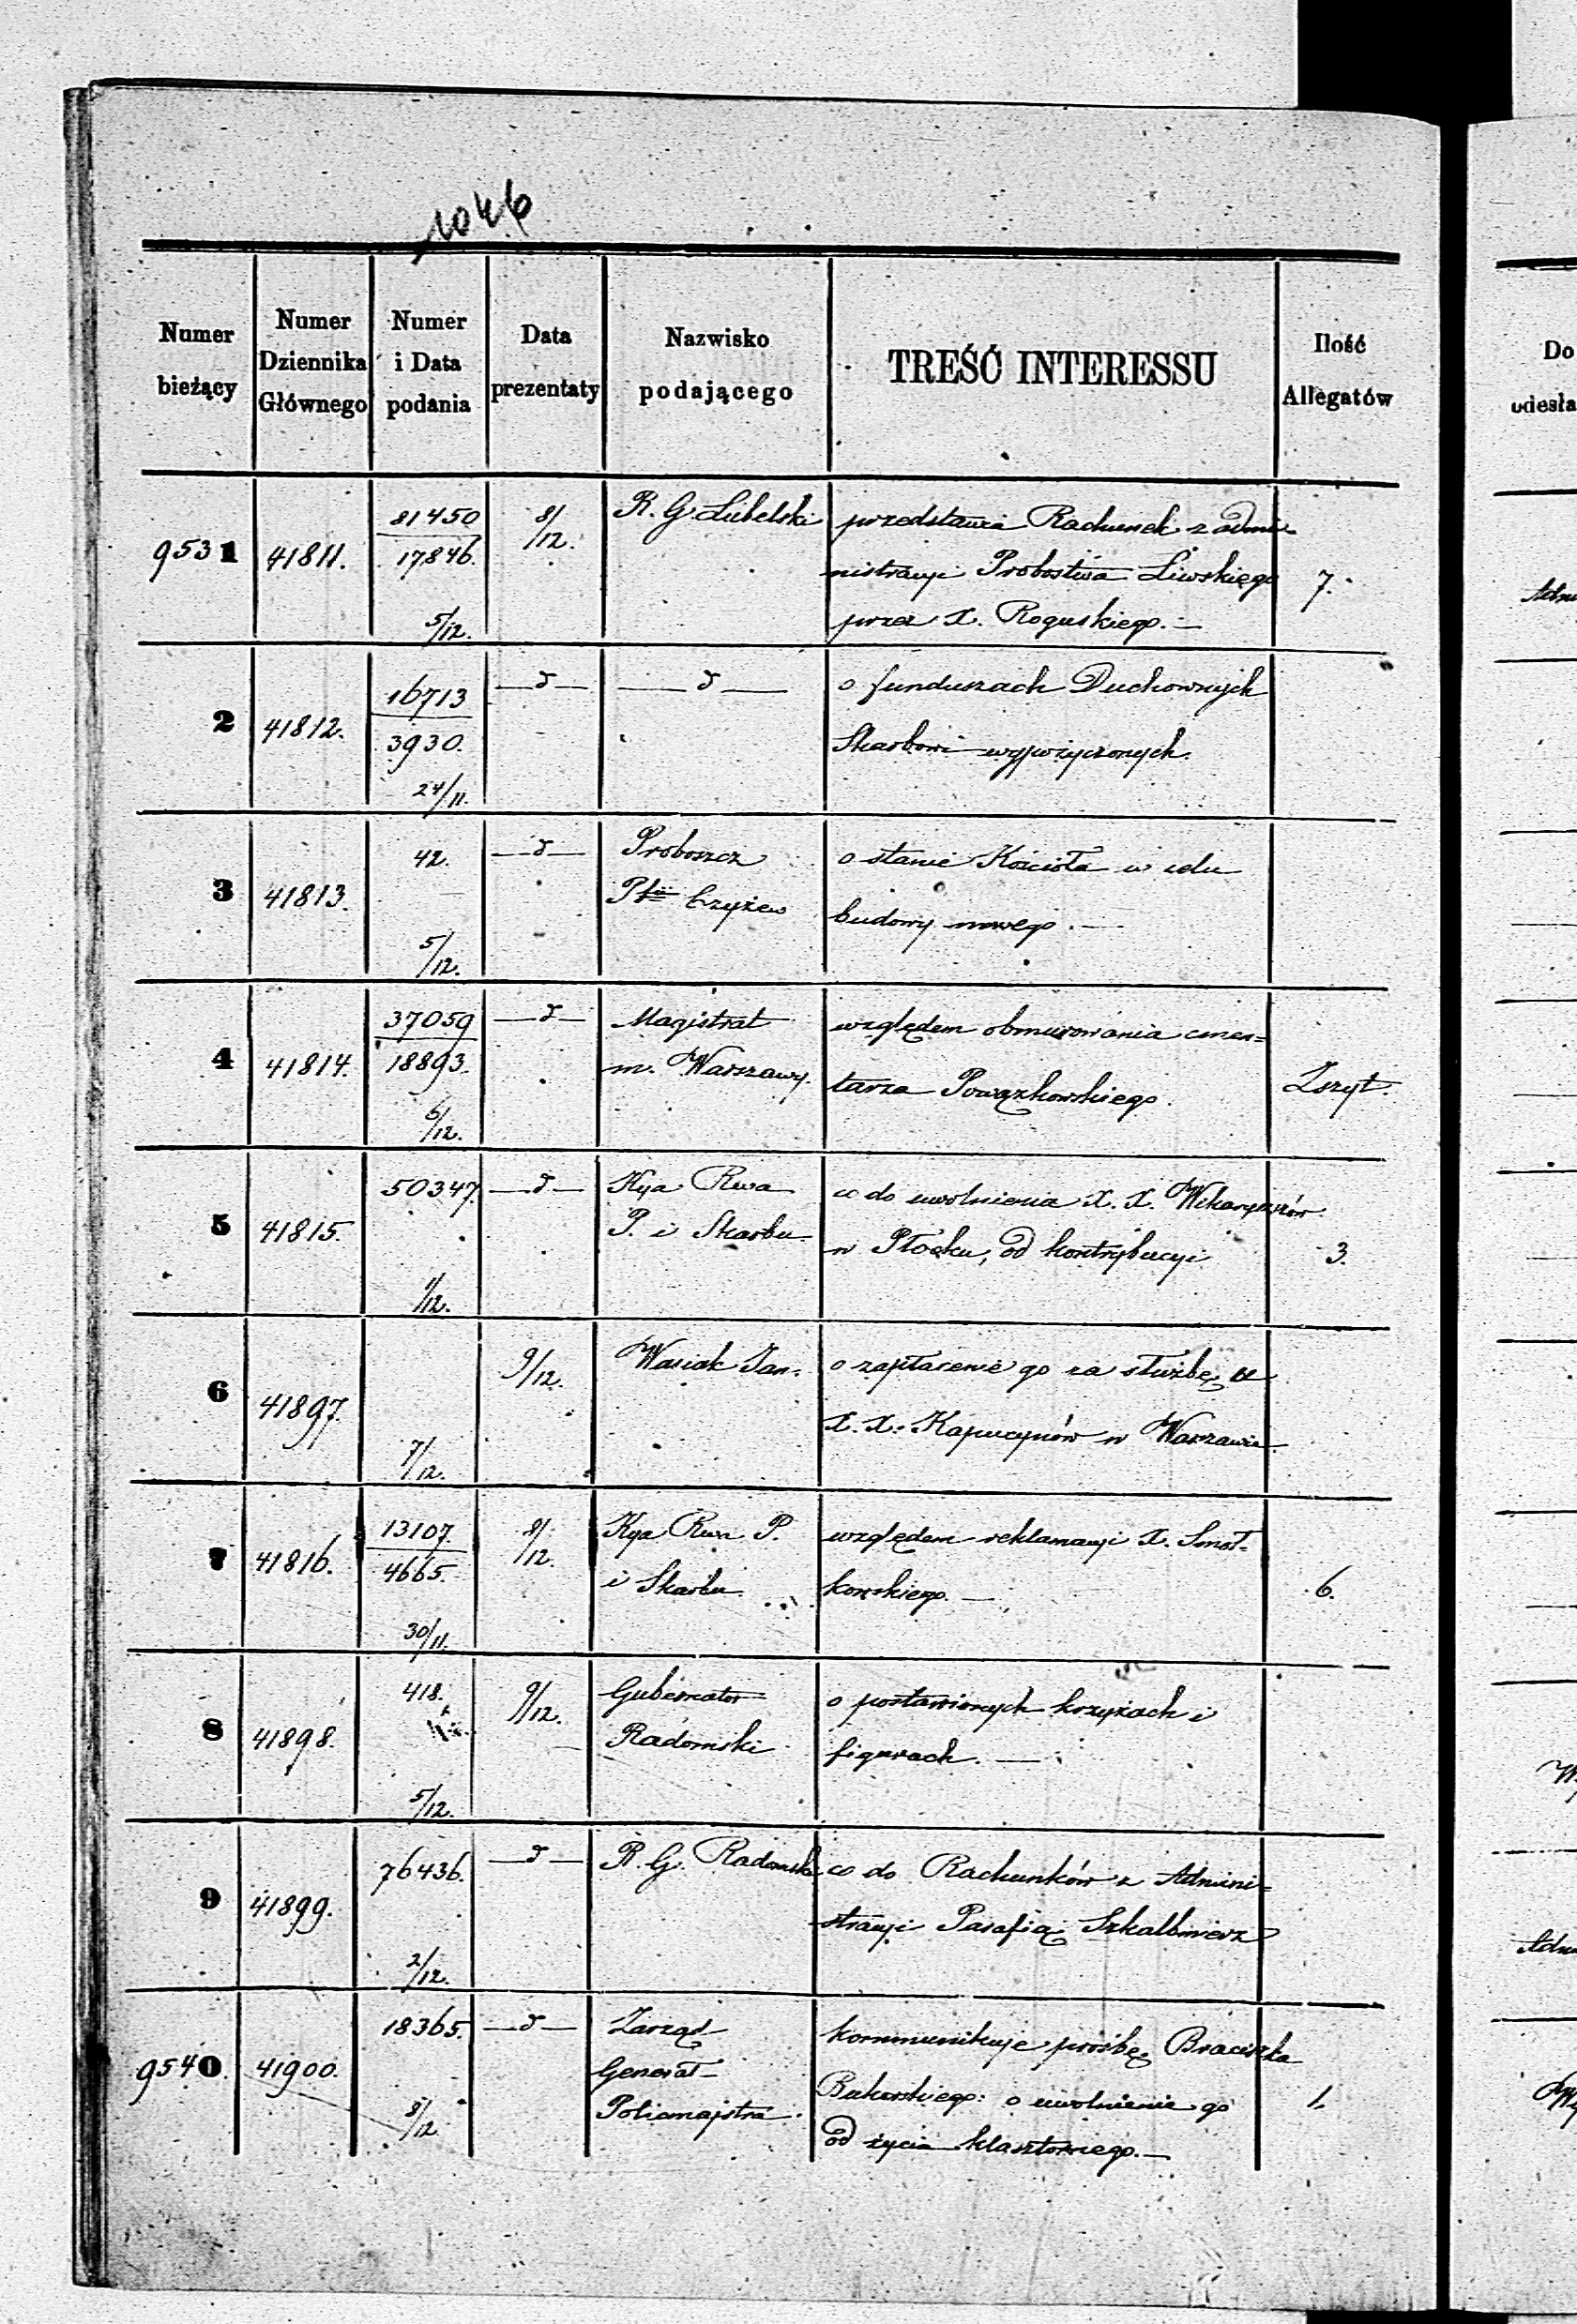 1046
Numer bieżący
Numer Dziennika Głównego
Numer i Data podania
Data prezentaty
Nazwisko podającego
TREŚĆ INTERESSU
Ilość Allegatów
Do
odesła
9531 41811. 81450 / 17846. 5/12. 8/12. R. G. Lubelski przedstawia Rachunek z admi
nistracyi Probostwa Liwskiego 7.
przez X. Roguskiego. —
2 41812. 16713 / 3930. 24/11. — d — — d — o funduszach Duchownych
Skarbowi wypożyczonych.
3 41813. 42. 5/12. — d — Proboszcz o stanie Kościoła w celu
Pfii Czyżew budowy nowego. —
4 41814. 37059 / 18893. 6/12. — d — Magistrat względem obmurowania cmen=
m. Warszawy. tarza Powązkowskiego. Zszyt.
5 41815. 50347. 1/12. — d — Kya Rwa co do uwolnienia X. X. Wikaryuszów
P. i Skarbu w Płocku, od kontrybucyi 3.
6 41897. 7/12. 9/12. Wasiak Jan. o zapłacenie go za służbę u
X. X. Kapucynów w Warszawie.
7 41816. 13107. / 4665. 30/11. 8/12. Kya Rwa P. względem reklamacyi X. Smoł=
i Skarbu kowskiego. — 6.
8 41898. 418. 5/12. 9/12. Gubernator o postawionych krzyżach i
Radomski figurach. —
9 41899. 76436. 2/12. — d — R. G. Radomski co do Rachunków z Admini=
stracyi Parafią Szkalbmierz
9540. 41900. 18365. 8/12 — d — Zarząd kommunikuje prośbę Braciszka
Generał o uwolnienie go 1.
Policmajstra. od życia klasztornego. —